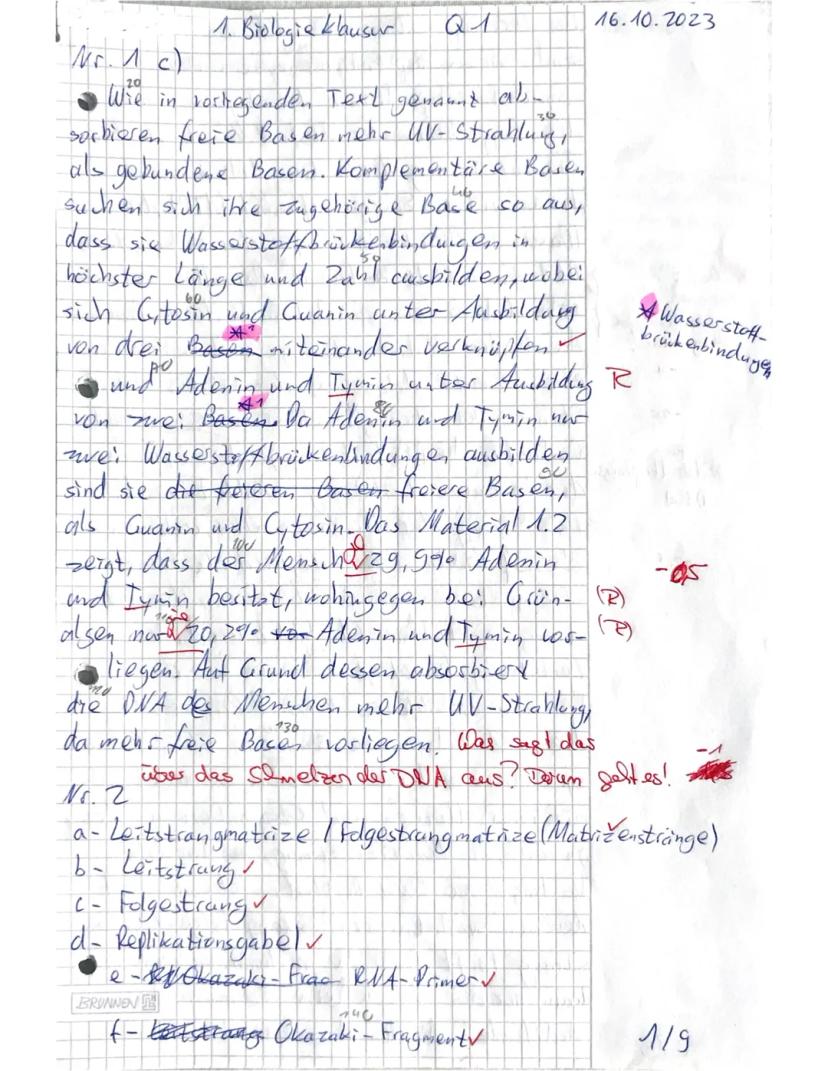 1. Biologieklausur Q1 16.10.2023
Nr. 1 c)
20
Wie in vorliegenden Text genannt ab-
30
sorbieren freie Basen mehr UV-Strahlung,
als gebundene Basen. Komplementäre Basen
40
suchen sich ihre zugehörige Base so aus,
dass sie Wasserstoffbrückenbindungen in
50
höchster Länge und Zahl ausbilden, wobei
60
sich Cytosin und Guanin unter Ausbildung
*1
von drei Basen miteinander verknüpfen ✓
* Wasserstoff-
brückenbindungen
und Adenin und Tymin unter Ausbildung R
*1
80
von zwei Basen. Da Adenin und Tymin nur
zwei Wasserstoffbrückenbindungen ausbilden
90
sind sie die freieren Basen freiere Basen,
als Guanin und Cytosin. Das Material 1.2
100
zeigt, dass der Mensch 29,9% Adenin
und Tymin besitzt, wohingegen bei Grün- (R)
algen nur 20,2% vor Adenin und Tymin vor- (R)
liegen. Auf Grund dessen absorbiert
die DNA des Menschen mehr UV-Strahlung,
130
da mehr freie Basen vorliegen. Was sagt das
-1
über das Schmelzen der DNA aus? Darum geht es!
Nr. 2
a- Leitstrangmatrize / Folgestrangmatrize (Matrizenstränge) ✓
b- Leitstrang ✓
c- Folgestrang ✓
d- Replikationsgabel ✓
e- Okazaki-Frag RNA-Primer ✓
BRUNNEN
140
f- Leitstrang Okazaki-Fragment ✓
1/9